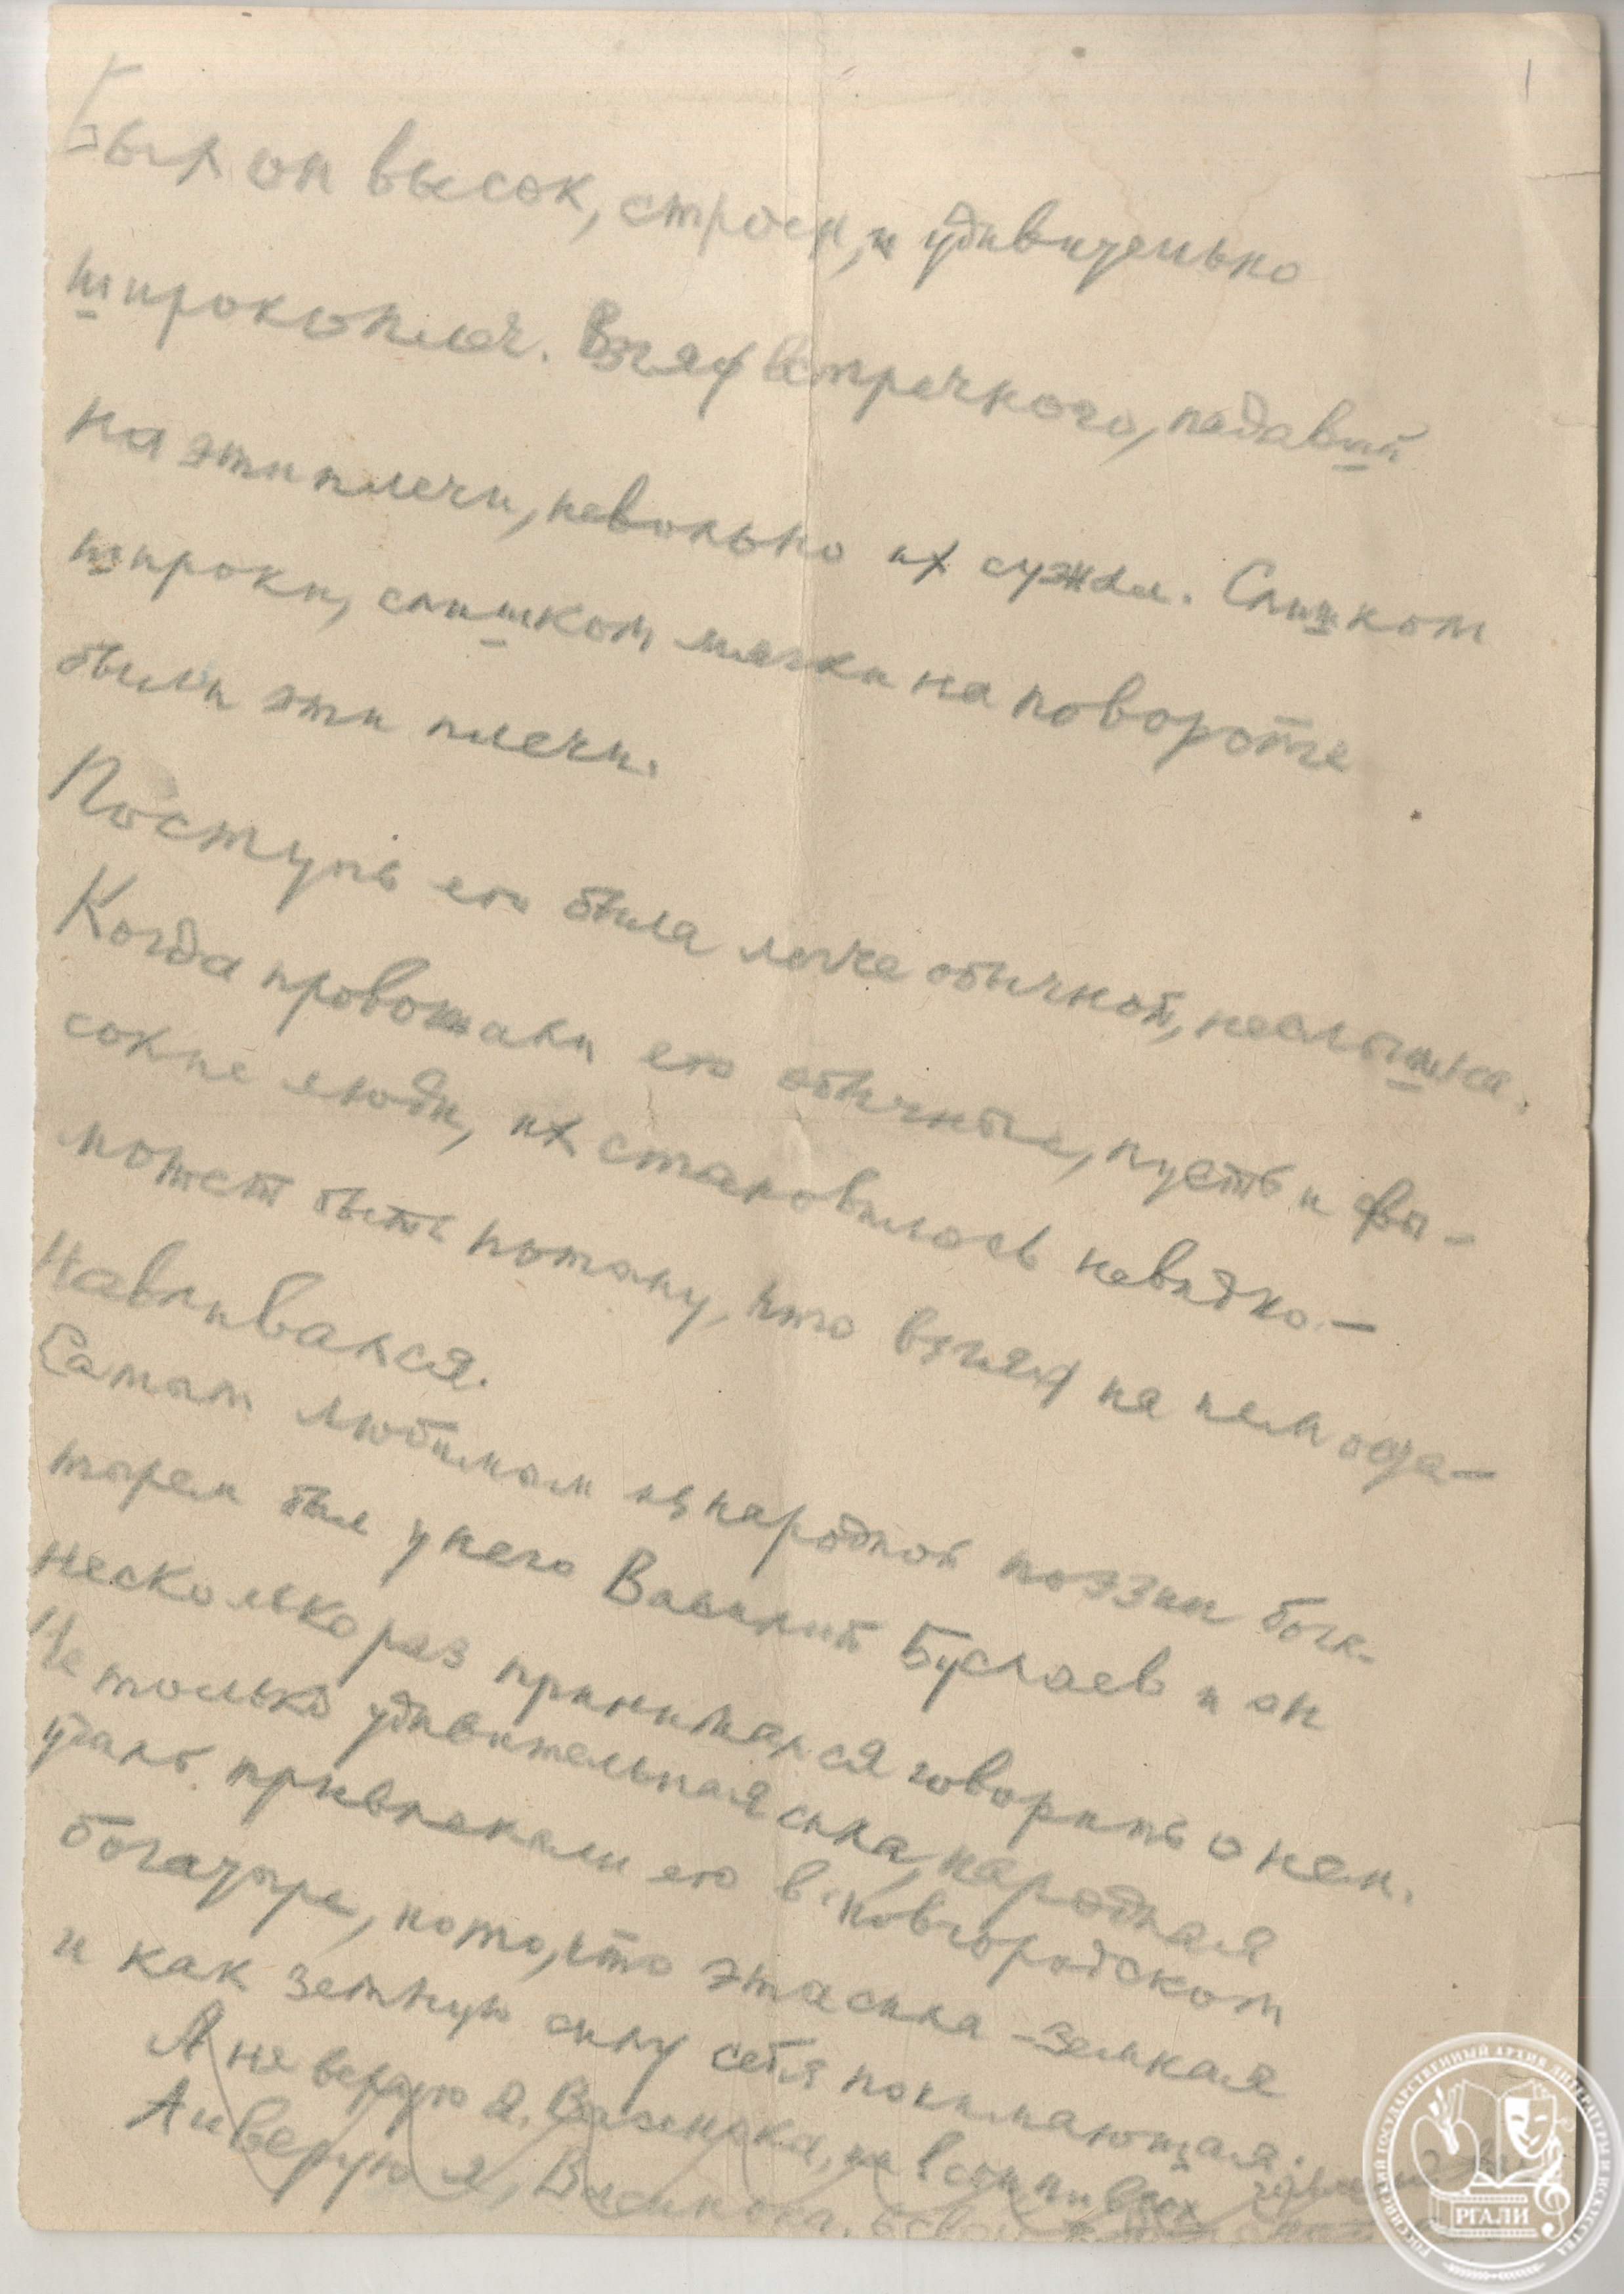 1
Был он высок, строен, и удивительно
широкоплеч. Взгляд встречного, падавший
на эти плечи, невольно их сужал. Слишком
широки, слишком мягки на повороте
были эти плечи.
Поступь его была легче обычной, неслышна.
Когда провожали его обычные, пусть и вы-
сокие люди, их становилось невидно. —
может быть потому, что взгляд на нем оста-
навливался.
Самым любимым из народной поэзии бога-
тырем был у него Василий Буслаев и он
несколько раз принимался говорить о нем.
Не только удивительная сила, народная
удаль привлекали его в новгородском
богатыре, но то, что эта сила – земная
и как земную силу себя понимающая.
А не верую я, Васинька, ни в сон ни в чох
А и верую я, Васинька, в свой
РОССИЙСКИЙ ГОСУДАРСТВЕННЫЙ АРХИВ ЛИТЕРАТУРЫ И ИСКУССТВА
РГАЛИ